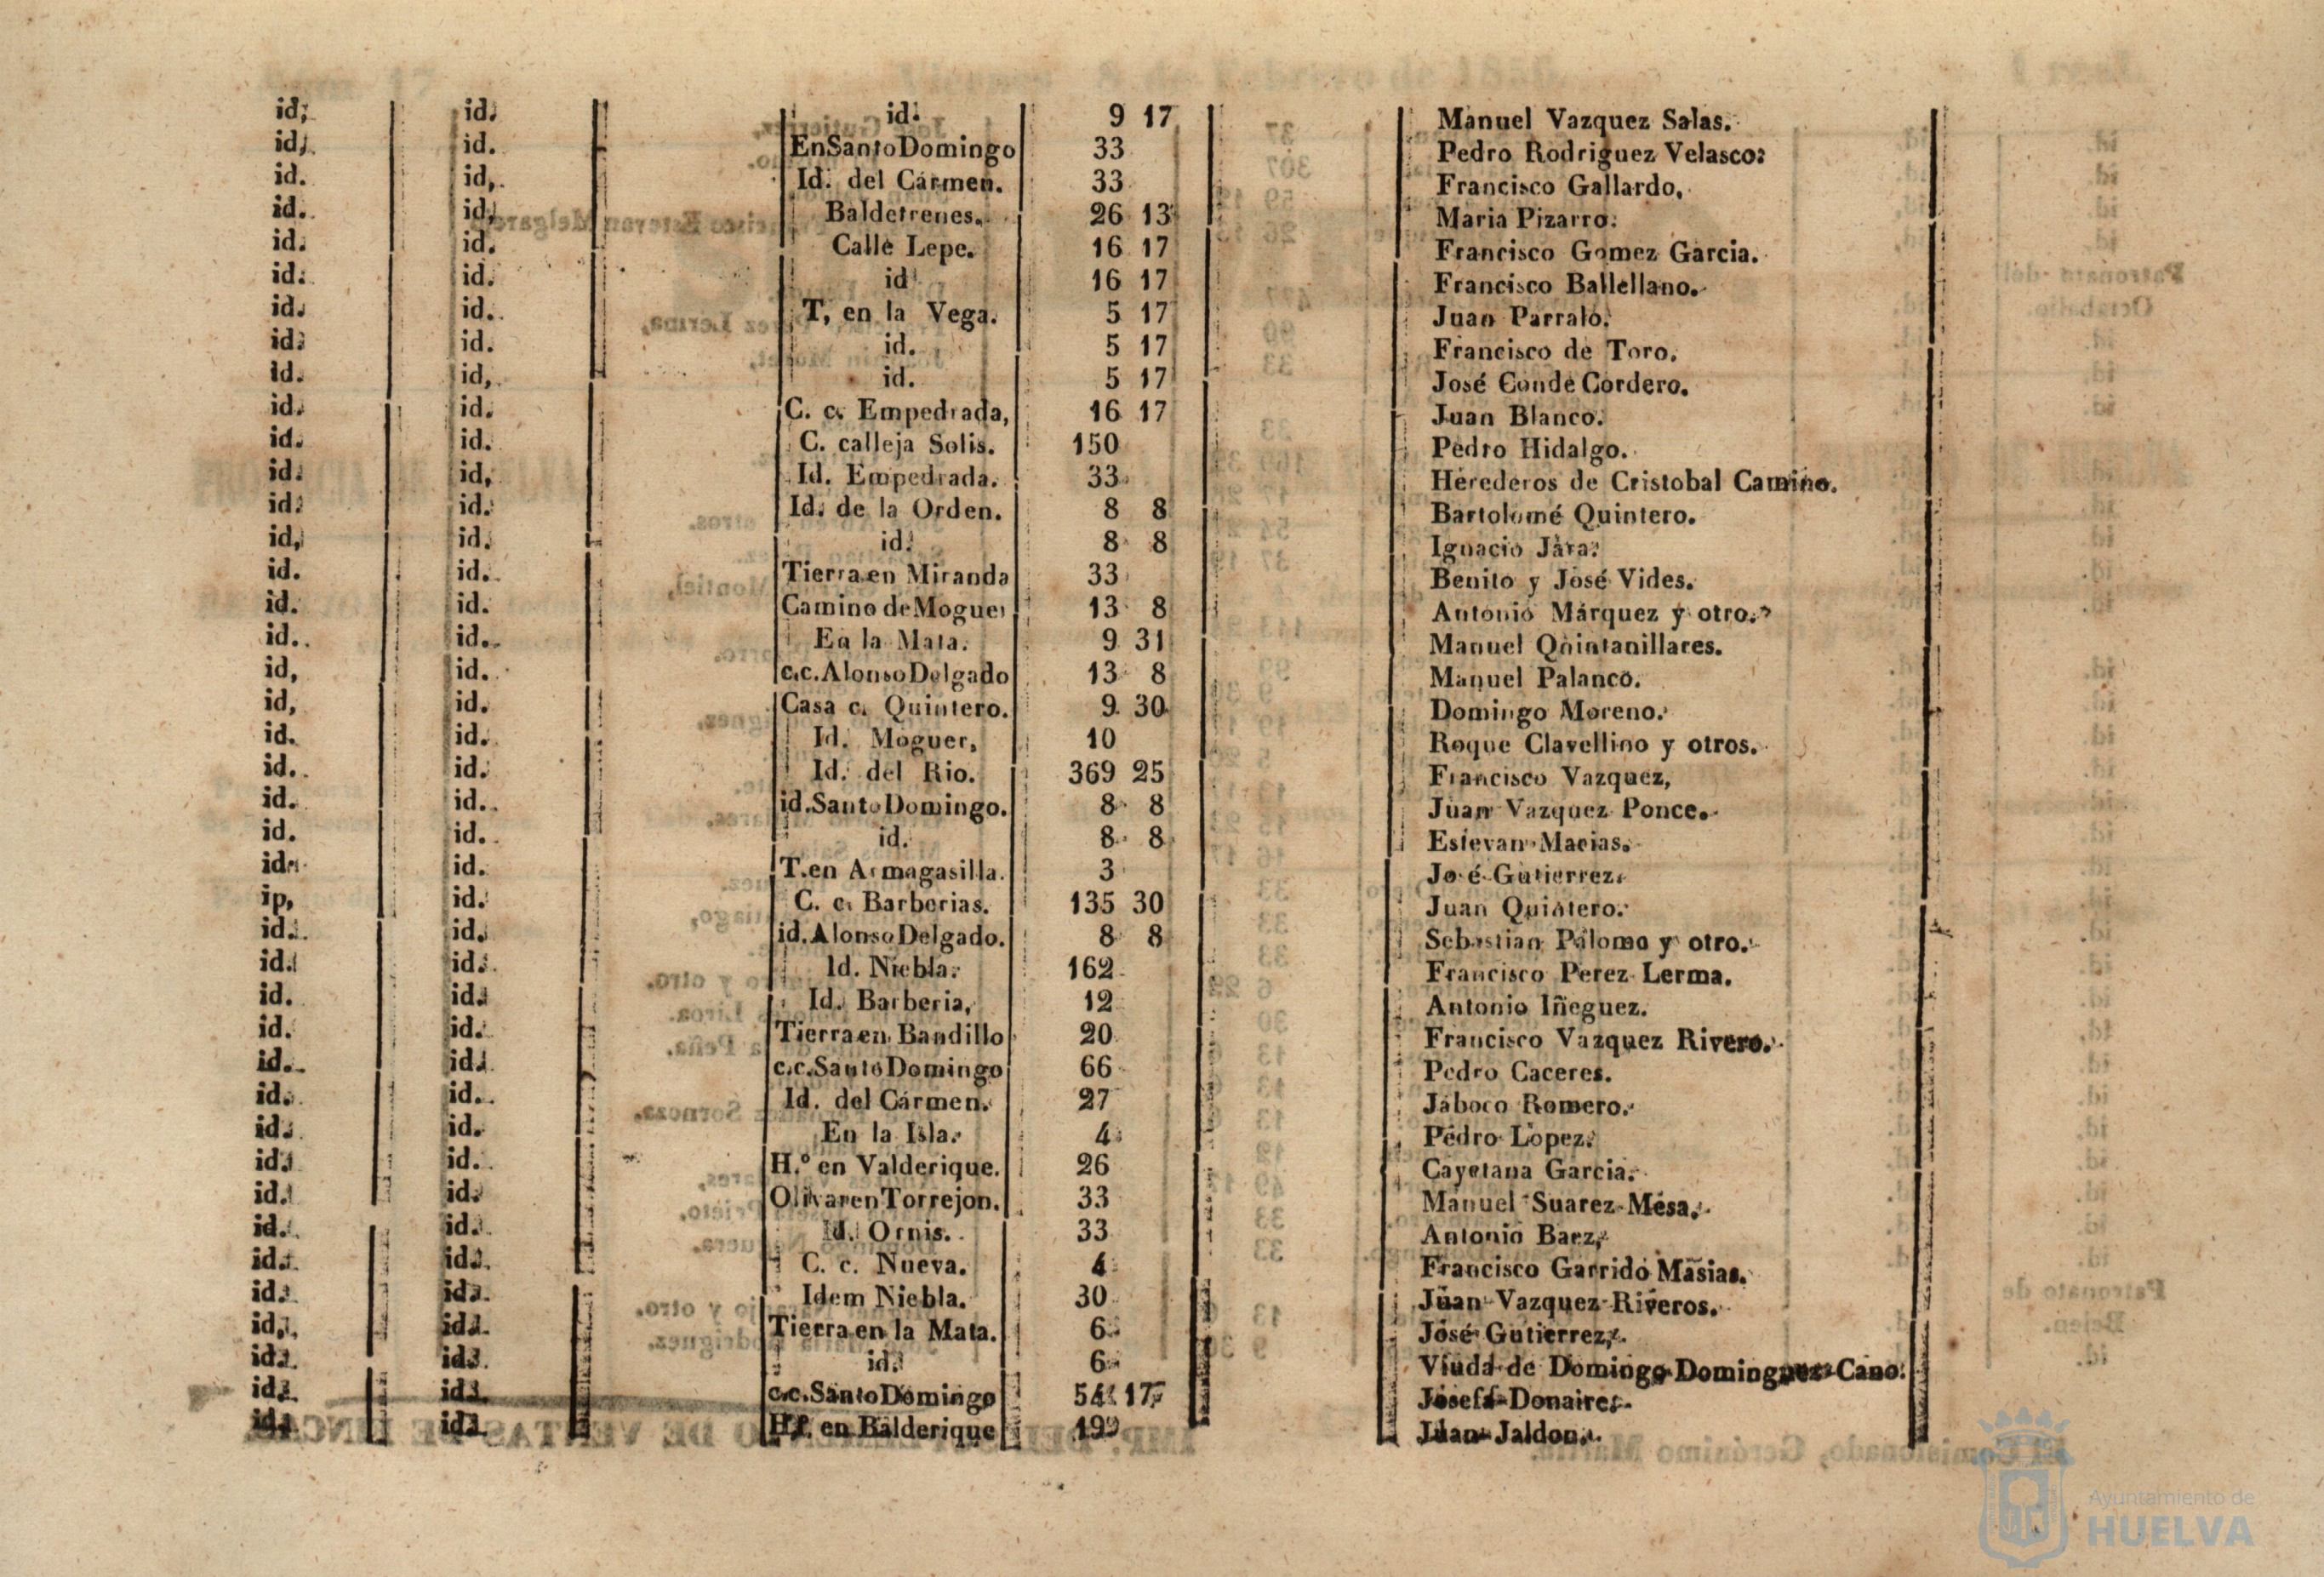 id; id. id. 9 17 Manuel Vazquez Salas.
id. id. En Santo Domingo 33 Pedro Rodriguez Velasco:
id. id, Id. del Cármen. 33 Francisco Gallardo,
id. id, Baldetrenes. 26 13 Maria Pizarro.
id. id. Calle Lepe. 16 17 Francisco Gomez Garcia.
id. id. id 16 17 Francisco Ballellano.
id. id. T, en la Vega. 5 17 Juan Parralo.
id. id. id. 5 17 Francisco de Toro.
Id. id, id. 5 17 José Conde Cordero.
id. id. C. c. Empedrada, 16 17 Juan Blanco.
id. id. C. calleja Solis. 150 Pedro Hidalgo.
id. id, Id. Empedrada. 33 Herederos de Cristobal Camino.
id. id. Id. de la Orden. 8 8 Bartolomé Quintero.
id, id. id. 8 8 Ignacio Jara.
id. id. Tierra en Miranda 33 Benito y José Vides.
id. id. Camino de Moguer 13 8 Antonio Márquez y otro.
id. id. En la Mata. 9 31 Manuel Qnintanillares.
id, id. c.c. Alonso Delgado 13 8 Manuel Palanco.
id, id. Casa c. Quintero. 9 30 Domingo Moreno.
id. id. Id. Moguer, 10 Roque Clavellino y otros.
id. id. Id. del Rio. 369 25 Francisco Vazquez,
id. id. id. Santo Domingo. 8 8 Juan Vazquez Ponce.
id. id. id. 8 8 Estevan Macias.
id. id. T. en Armagasilla. 3 José Gutierrez.
ip, id. C. c. Barberias. 135 30 Juan Quintero.
id. id. id. Alonso Delgado. 8 8 Sebastian Palomo y otro.
id. id. Id. Niebla. 162 Francisco Perez Lerma.
id. id. Id. Barberia, 12 Antonio Iñeguez.
id. id. Tierra en Bandillo 20 Francisco Vazquez Rivero.
id. id. c.c. Santo Domingo 66 Pedro Caceres.
id. id. Id. del Cármen. 27 Jaboco Romero.
id. id. En la Isla. 4 Pedro Lopez.
id. id. H.º en Valderique. 26 Cayetana Garcia.
id. id. Olivar en Torrejon. 33 Manuel Suarez Mesa,
id. id. Id. Ornis. 33 Antonio Baez,
id. id. C. c. Nueva. 4 Francisco Garrido Masias.
id. id. Idem Niebla. 30 Juan Vazquez Riveros.
id, id. Tierra en la Mata. 6 José Gutierrez,
id. id. id. 6 Viuda de Domingo Dominguez Cano.
id. id. c.c. Santo Domingo 54 17 Josefa Donaire.
id. id. en Balderique 199 Juan Jaldon.
Ayuntamiento de
HUELVA